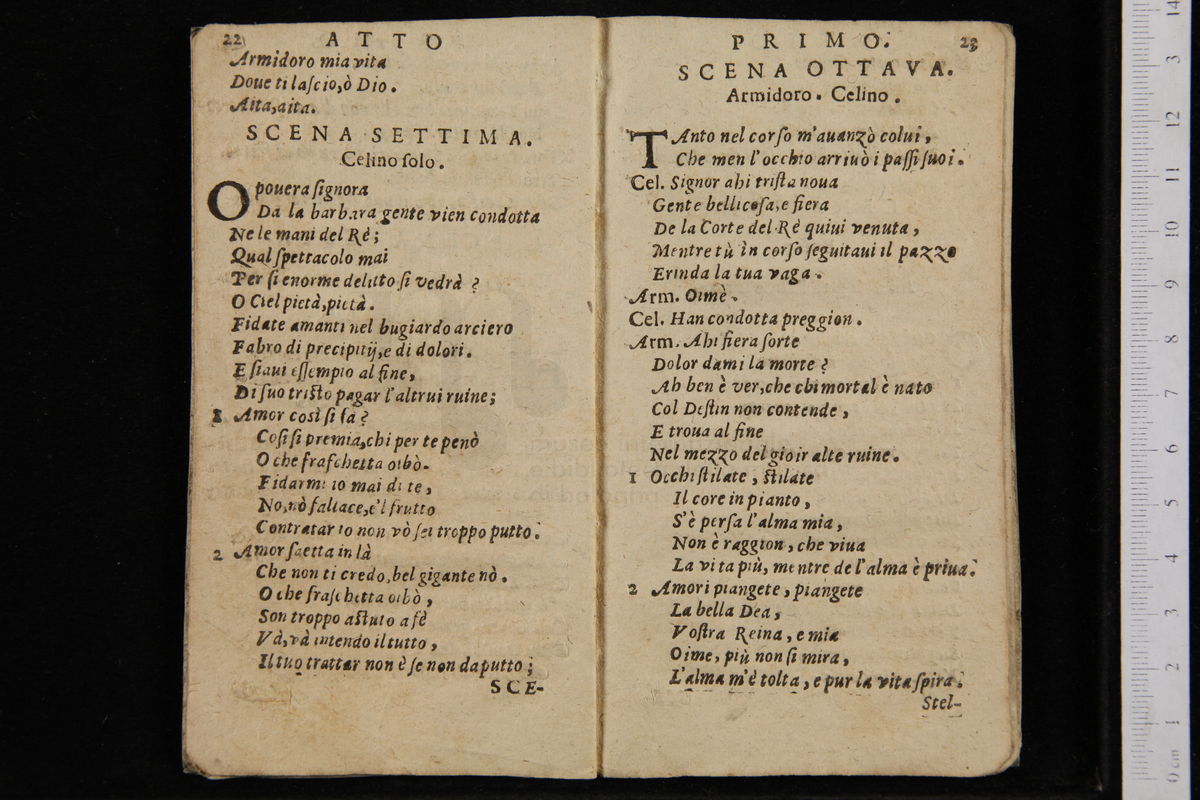 22 ATTO
Armidoro mia vita
Doue ti laſcio, ò Dio.
Aita, aita.
SCENA SETTIMA.
Celino ſolo.
O pouera ſignora
Da la barbara gente vien condotta
Ne le mani del Rè;
Qual ſpettacolo mai
Per ſi enorme delitto ſi vedrà ?
O Ciel pietà, pietà.
Fidate amanti nel bugiardo arciero
Fabro di precipitij, e di dolori.
E ſiaui eſſempio al fine,
Di ſuo triſto pagar l'altrui ruine;
1 Amor così ſi fa ?
Coſi ſi premia, chi per te penò
O che fraſchetta oibò.
Fidarmi io mai di te,
No, nò fallace, e'l frutto
Contratar io non vò ſei troppo putto.
2 Amor ſaetta in là
Che non ti credo, bel gigante nò.
O che fraſchetta oibò,
Son troppo aſtuto a fè
Và, và intendo il tutto,
Il tuo trattar non è ſe non da putto;
SCE-
PRIMO. 23
SCENA OTTAVA.
Armidoro. Celino.
TAnto nel corſo m'auanzò colui,
Che men l'occhio arriuò i paſſi ſuoi.
Cel. Signor ahi triſta noua
Gente bellicoſa, e fiera
De la Corte del Rè quiui venuta,
Mentre tù in corſo ſeguitaui il pazzo
Erinda la tua vaga.
Arm. Oimè.
Cel. Han condotta preggion.
Arm. Ahi fiera ſorte
Dolor dami la morte ?
Ah ben è ver, che chi mortal è nato
Col Deſtin non contende,
E troua al fine
Nel mezzo del gioir alte ruine.
1 Occhi ſtilate, ſtilate
Il core in pianto,
S'è perſa l'alma mia,
Non è raggion, che viua
La vita più, mentre de l'alma è priua.
2 Amori piangete, piangete
La bella Dea,
Voſtra Reina, e mia
Oime, più non ſi mira,
L'alma m'è tolta, e pur la vita ſpira.
Stel-